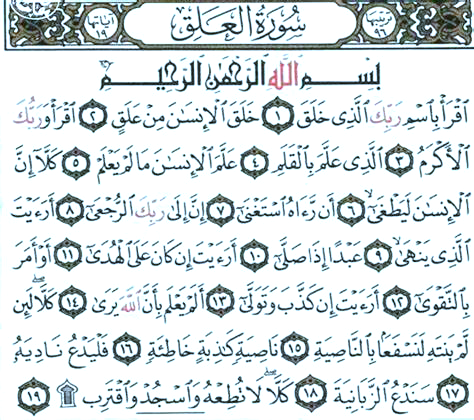 ترتيبها ٩٦ سُورَةُ العَلَق آياتها ١٩
بِسْمِ اللَّهِ الرَّحْمَٰنِ الرَّحِيمِ
ٱقْرَأْ بِٱسْمِ رَبِّكَ ٱلَّذِى خَلَقَ ١ خَلَقَ ٱلْإِنسَٰنَ مِنْ عَلَقٍ ٢ ٱقْرَأْ وَرَبُّكَ
ٱلْأَكْرَمُ ٣ ٱلَّذِى عَلَّمَ بِٱلْقَلَمِ ٤ عَلَّمَ ٱلْإِنسَٰنَ مَا لَمْ يَعْلَمْ ٥ كَلَّآ إِنَّ
ٱلْإِنسَٰنَ لَيَطْغَىٰٓ ٦ أَن رَّءَاهُ ٱسْتَغْنَىٰٓ ٧ إِنَّ إِلَىٰ رَبِّكَ ٱلرُّجْعَىٰٓ ٨ أَرَءَيْتَ
ٱلَّذِى يَنْهَىٰ ٩ عَبْدًا إِذَا صَلَّىٰٓ ١٠ أَرَءَيْتَ إِن كَانَ عَلَى ٱلْهُدَىٰٓ ١١ أَوْ أَمَرَ
بِٱلتَّقْوَىٰٓ ١٢ أَرَءَيْتَ إِن كَذَّبَ وَتَوَلَّىٰٓ ١٣ أَلَمْ يَعْلَم بِأَنَّ ٱللَّهَ يَرَىٰ ١٤ كَلَّا لَئِن
لَّمْ يَنتَهِ لَنَسْفَعًۢا بِٱلنَّاصِيَةِ ١٥ نَاصِيَةٍ كَٰذِبَةٍ خَاطِئَةٍ ١٦ فَلْيَدْعُ نَادِيَهُۥ
١٧ سَنَدْعُ ٱلزَّبَانِيَةَ ١٨ كَلَّا لَا تُطِعْهُ وَٱسْجُدْ وَٱقْتَرِب ۩ ١٩